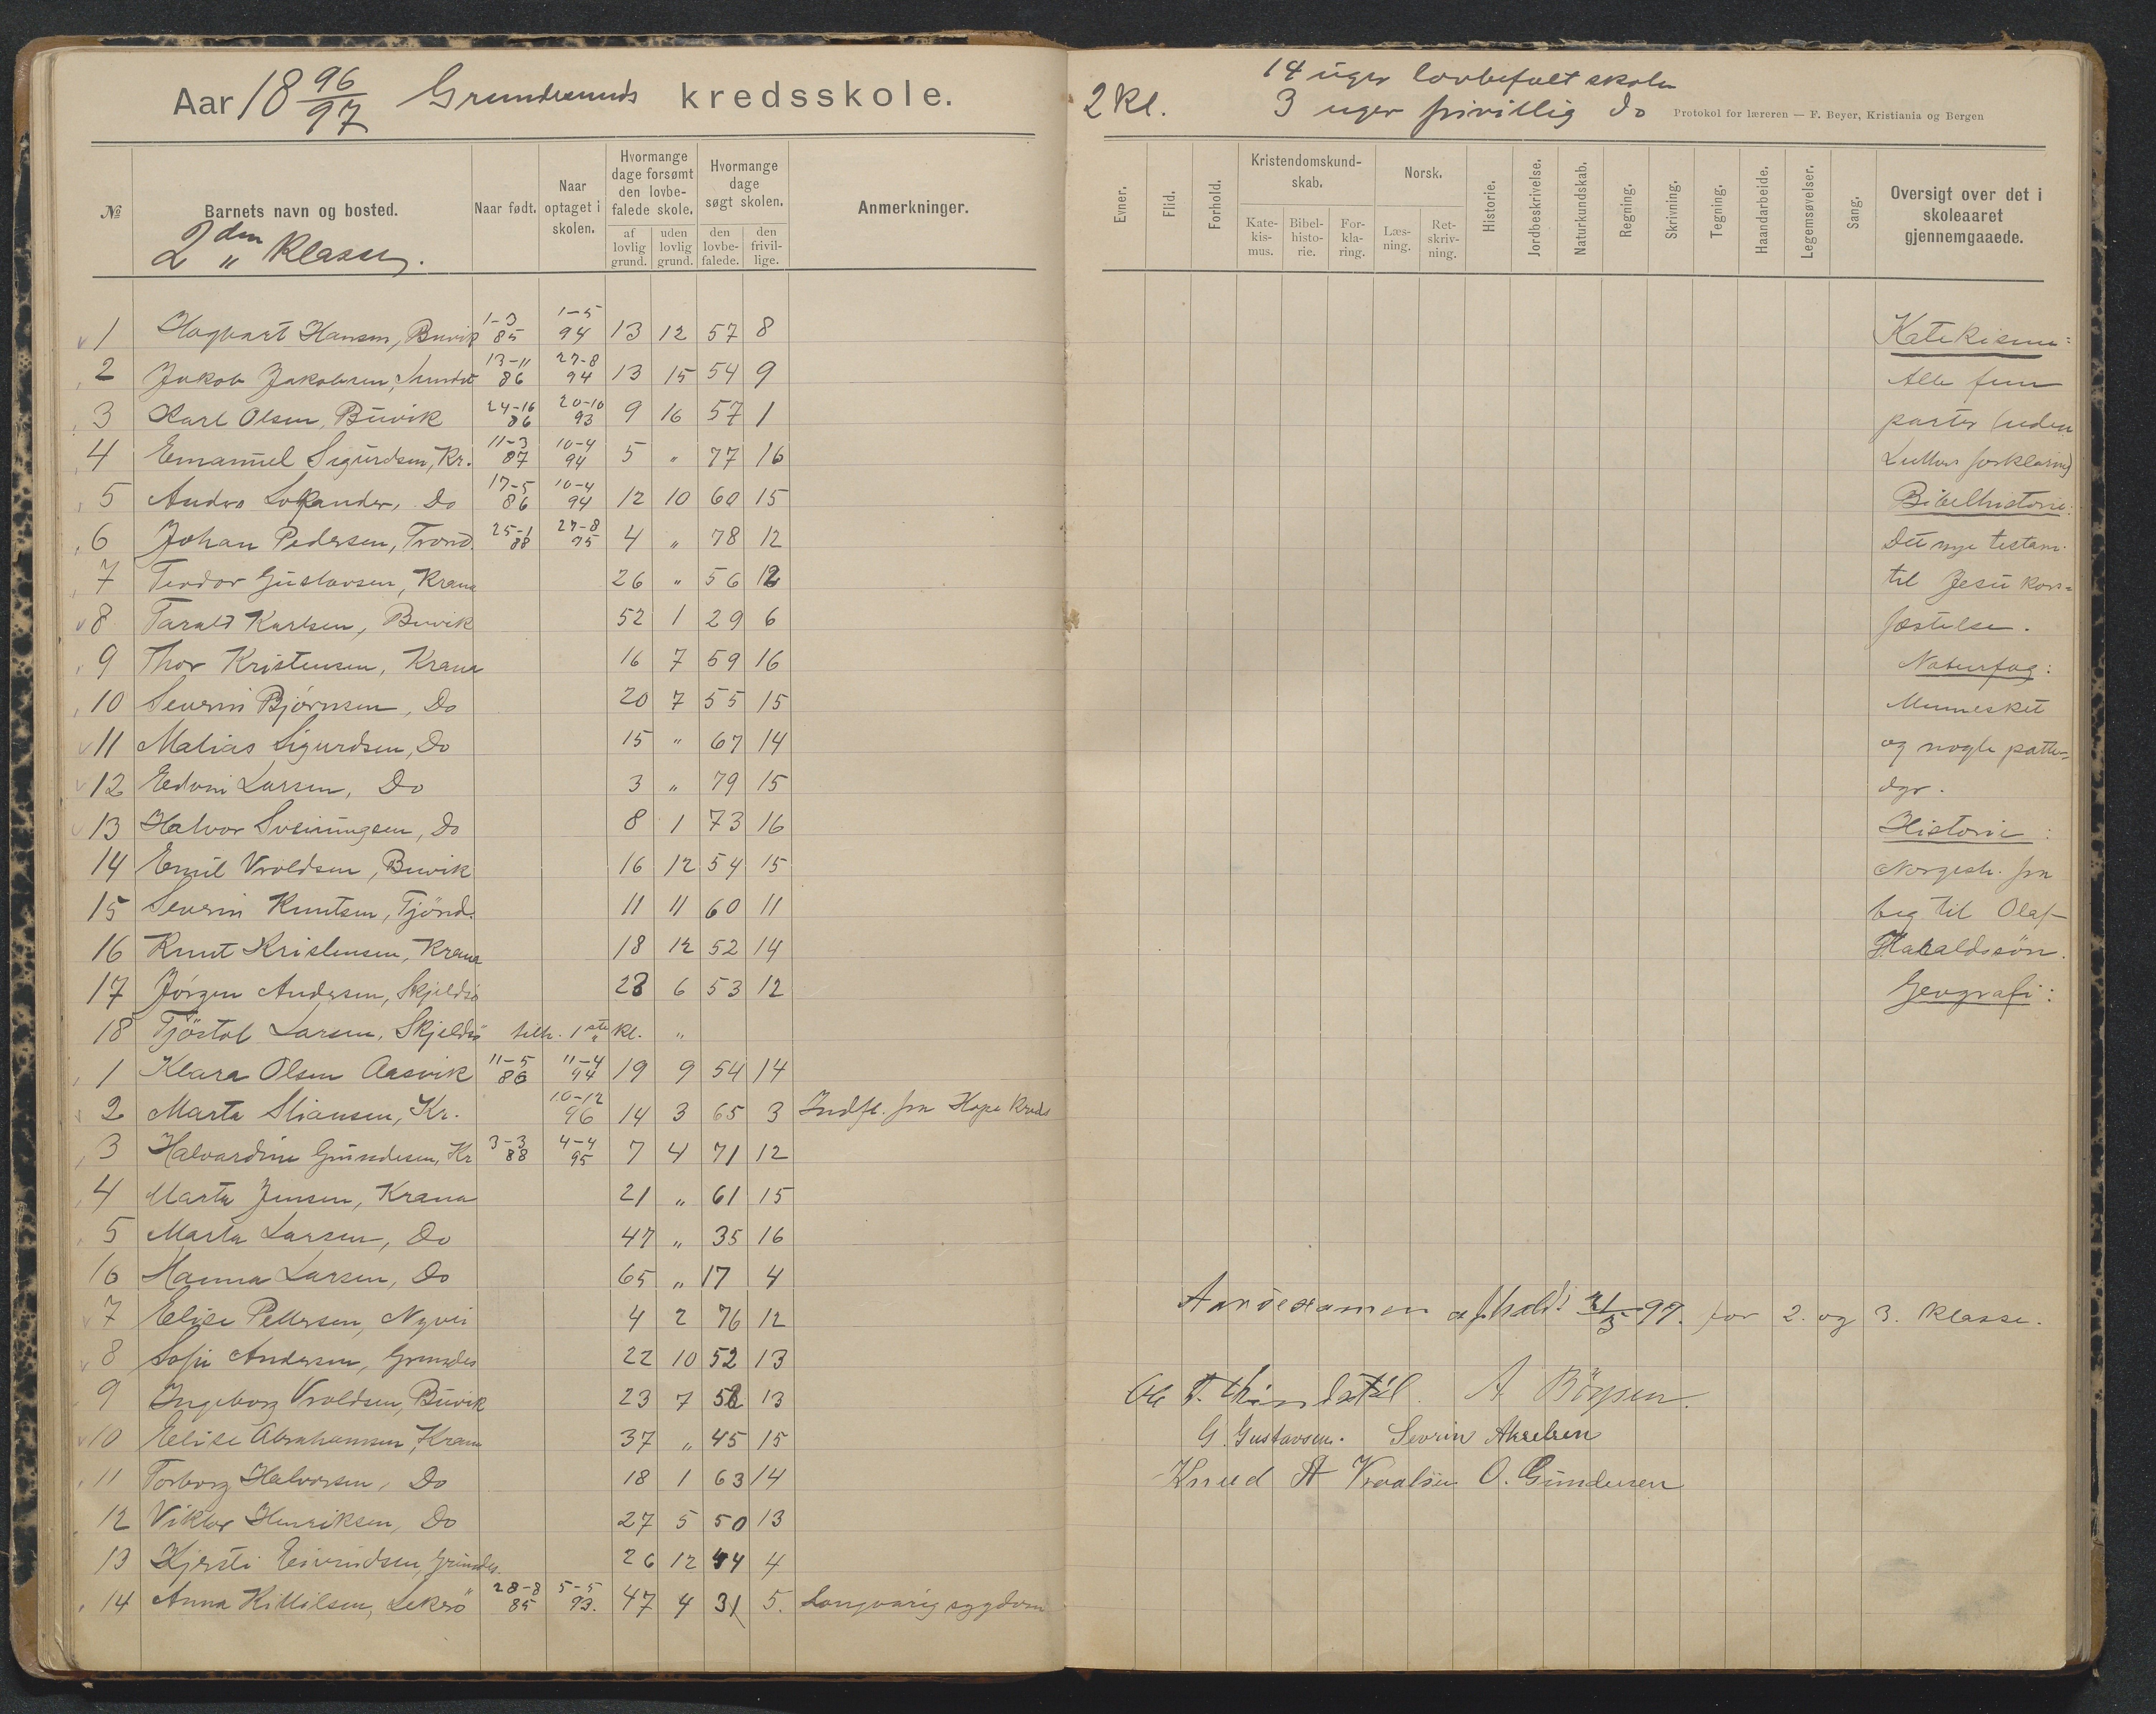 Aar 18 96/97 Grundesunds kredsskole.
№ Barnets navn og bosted. Naar født. Naar optaget i skolen. Hvormange dage forsømt den lovbefalede skole. af lovlig grund. uden lovlig grund. Hvormange dage søgt skolen. den lovbefalede. den frivillige. Anmerkninger.
2den Klasse.
1 Hagbart Hansen, Buvik 1-3 85 1-5 94 13 12 57 8
2 Jakob Jakobsen, 13-11 86 27-8 94 13 15 54 9
3 Karl Olsen, Buvik 24-16 86 20-10 93 9 16 57 1
4 Emanuel Sigurdsen, Kr. 11-3 87 10-4 94 5 " 77 16
5 Anders Do 17-5 86 10-4 94 12 10 60 15
6 Johan Pedersen, Trond. 25-1 88 27-8 95 4 " 78 12
7 Teodor Gustavsen, Krana 26 " 56 12
8 Tarald Karlsen, Buvik 52 1 29 6
9 Thor Kristensen, Krana 16 7 59 16
10 Severin Bjørnsen, Do 20 7 55 15
11 Matias Sigurdsen, Do 15 " 67 14
12 Edvin Larsen, Do 3 " 79 15
13 Halvor Sveinungsen, Do 8 1 73 16
14 Emil Vroldsen, Buvik 16 12 54 15
15 Severin Knutsen, Tjönd. 11 11 60 11
16 Knut Kristensen, Krana 18 12 52 14
17 Jörgen Andersen, Skjeldsö 23 6 53 12
18 Tjöstol Larsen, Skjeldsö tilh. 1ste Kl. "
1 Klara Olsen Aasvik 11-5 86 11-4 94 19 9 54 14
2 Marta Stiansen, Kr. 10-12 96 14 3 65 3 Indfl. fra Hope Kreds
3 Halvardine Gundesen, Kr 3-3 88 4-4 95 7 4 71 12
4 Marta Jensen, Krana 21 " 61 15
5 Marta Larsen, Do 47 " 35 16
6 Hanna Larsen, Do 65 " 17 4
7 Elise Pettersen, Nyvei 4 2 76 12
8 Sofie Andersen, Grundes 22 10 52 13
9 Ingeborg Vroldsen, Buvik 23 7 13
10 Elise Abrahamsen, Krana 37 " 45 15
11 Torborg Halvorsen, Do 18 1 63 14
12 Viktor Henriksen, Do 27 5 50 13
13 Kjersti Eivindsen, Grundes. 26 12 44 4
14 Anna Kittilsen, Leksö 28-8 85 5-5 93. 47 4 31 5. Langvarig sygdom
2 Kl.
14 uger lovbefalt skole
3 uger frivillig Do
Protokol for læreren — F. Beyer, Kristiania og Bergen
Evner. Flid. Forhold. Kristendomskundskab. Katekismus. Bibelhistorie. Forklaring. Norsk. Læsning. Retskrivning. Historie. Jordbeskrivelse. Naturkundskab. Regning. Skrivning. Tegning. Haandarbeide. Legemsøvelser. Sang. Oversigt over det i skoleaaret gjennemgaaede.
Katekisme:
Alle fem
parter (uden
Luthers forklaring)
Bibelhistorie:
Det nye testam.
til Jesu kors=
fæstelse.
Naturfag:
Mennesket
og nogle patte=
dyr.
Historie:
Norgesh. fra
beg til Olaf
Haraldssön.
Geografi:
Aarsexamen afholdt 21/5 97. for 2. og 3. Klasse.
Ole T. A Börresen.
G. Gustavsen. Sevrin Akselsen
Knud A Vroalsen O. Gundersen